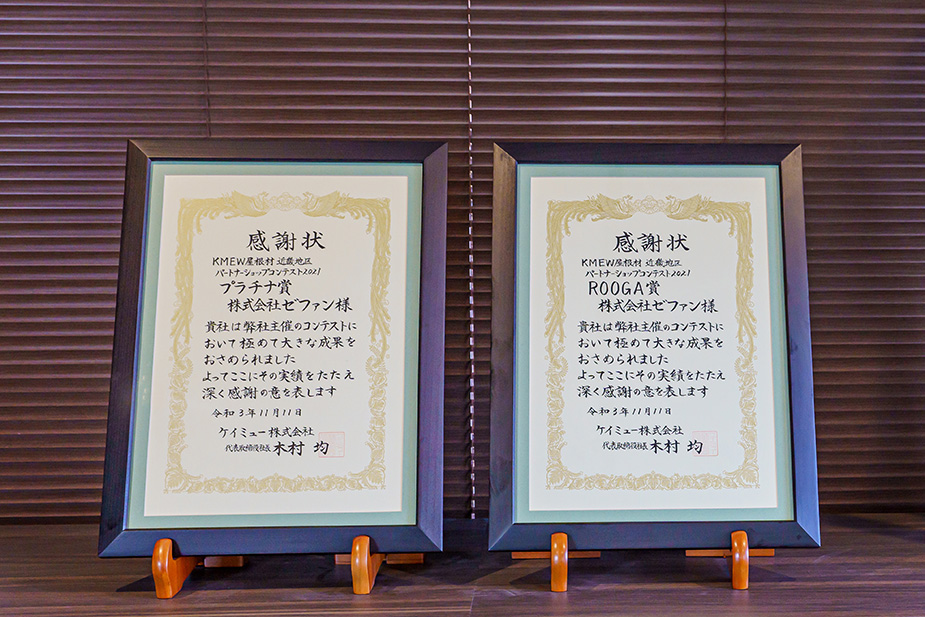 感謝状
KMEW屋根材 近畿地区
パートナーショップコンテスト2021
プラチナ賞
株式会社ゼファン様
貴社は弊社主催のコンテストに
おいて極めて大きな成果を
おさめられました
よってここにその実績をたたえ
深く感謝の意を表します
令和3年11月11日
ケイミュー株式会社
代表取締役社長 木村 均
感謝状
KMEW屋根材 近畿地区
パートナーショップコンテスト2021
ROOGA賞
株式会社ゼファン様
貴社は弊社主催のコンテストに
おいて極めて大きな成果を
おさめられました
よってここにその実績をたたえ
深く感謝の意を表します
令和3年11月11日
ケイミュー株式会社
代表取締役社長 木村 均